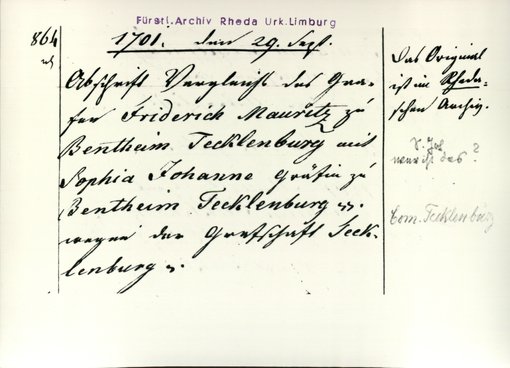 Fürstl. Archiv Rheda Urk. Limburg
864
1701. den 29. Sept.
Abschrift Vergleichs des Gra-
fen Friderich Mauritz zu
Bentheim Tecklenburg mit
Sophia Johanne Gräfin zu
Bentheim Tecklenburg
wegen der Grafschaft Teck-
lenburg
Das Original
ist im Rheda-
schen Archiv.
S. Joh
wer ist das?
Com. Tecklenburg